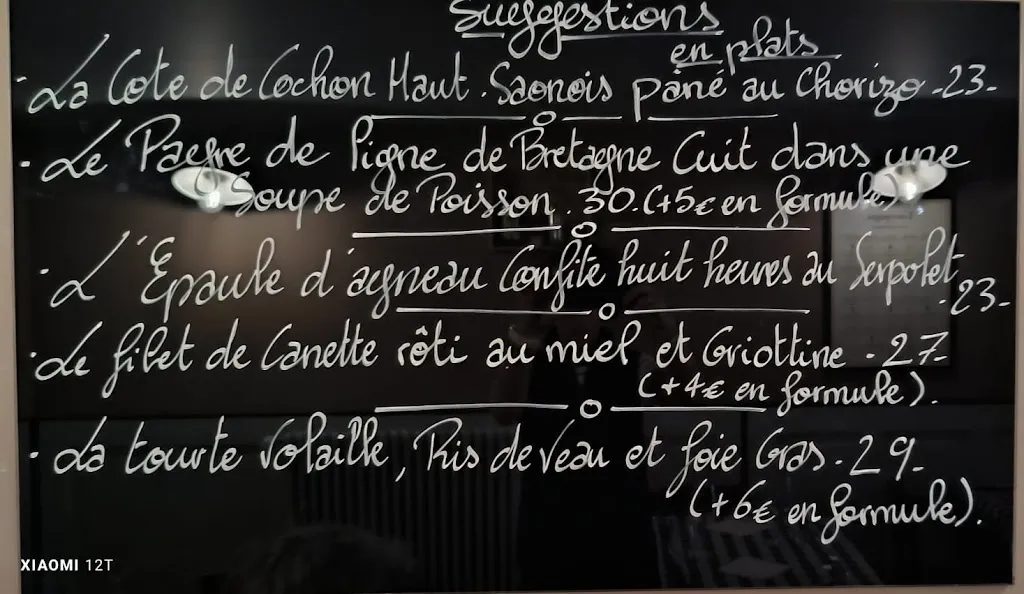 Suggestions
en plats
· La Cote de Cochon Haut. Saonois pané au Chorizo -23-
· Le Pagre de Pigne de Bretagne Cuit dans une
Soupe de Poisson. 30. (+5€ en formule)
· L'Epaule d'agneau Confite huit heures au Serpolet
- 23 -
· Le filet de Canette rôti au miel et Griottine - 27-
(+4€ en formule).
· La tourte Volaille, Ris de Veau et foie Gras. 29-
(+6€ en formule).
XIAOMI 12T